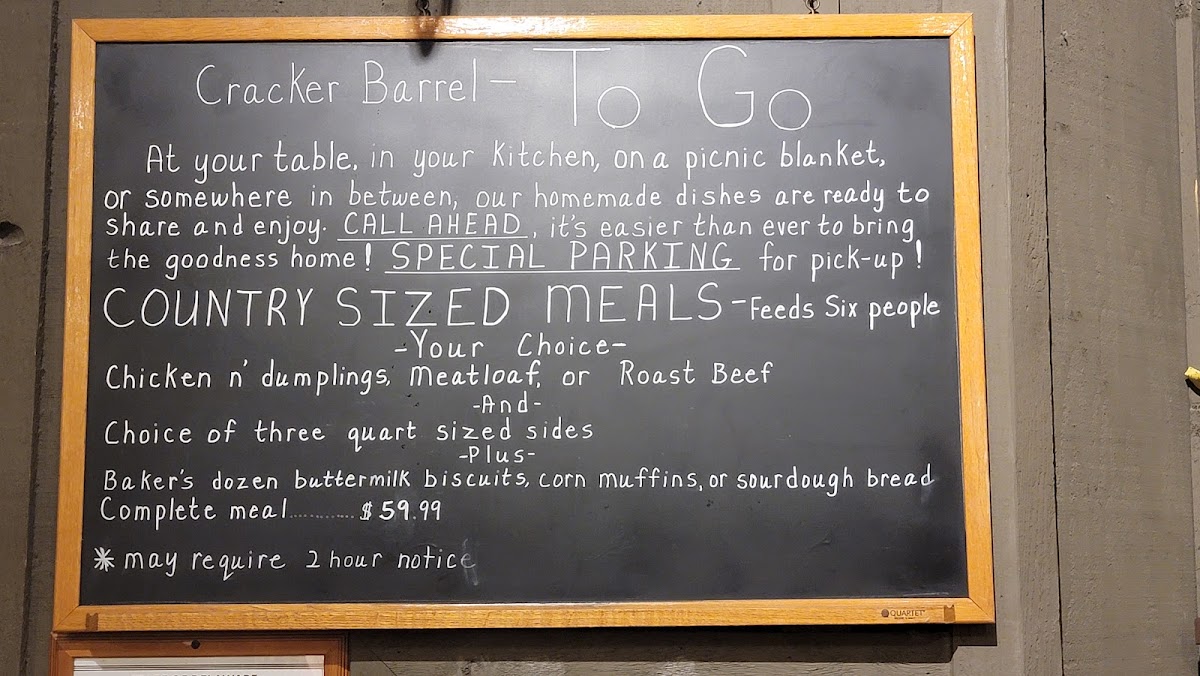 Cracker Barrel - To Go
At your table, in your kitchen, on a picnic blanket,
or somewhere in between, our homemade dishes are ready to
share and enjoy. CALL AHEAD, it's easier than ever to bring
the goodness home! SPECIAL PARKING for pick-up!
COUNTRY SIZED MEALS - Feeds Six people
-Your Choice-
Chicken n' dumplings, Meatloaf, or Roast Beef
-And-
Choice of three quart sized sides
-Plus-
Baker's dozen buttermilk biscuits, corn muffins, or sourdough bread
Complete meal........... $59.99
* may require 2 hour notice
QUARTET